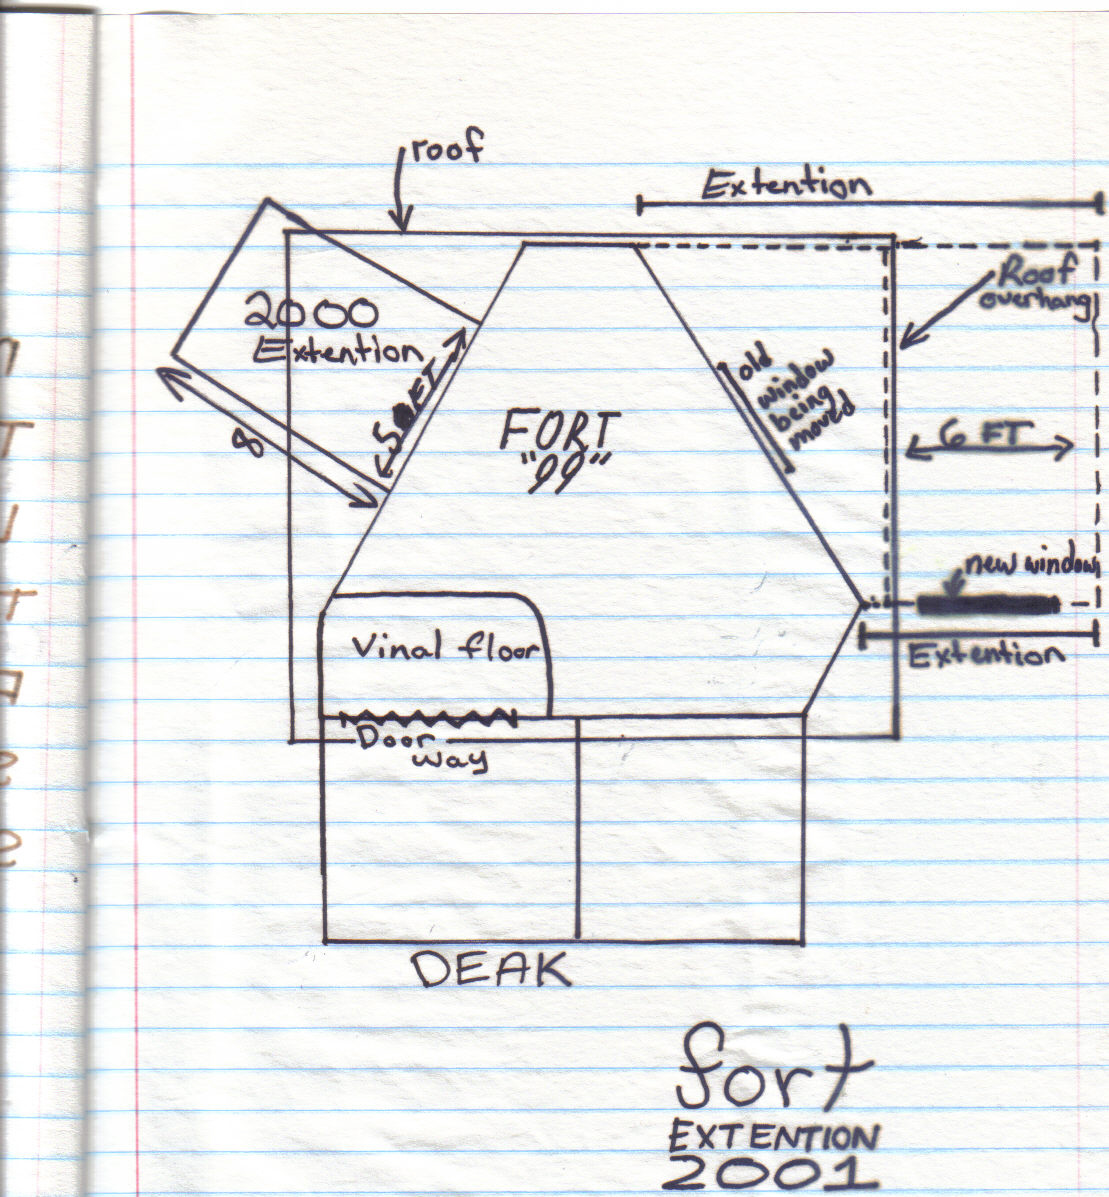 roof
Extention
Roof
overhang
2000
Extention
5 FT
8
old
window
being
moved
FORT
"99"
6 FT
new window
Extention
Vinal floor
Door
way
DEAK
fort
EXTENTION
2001